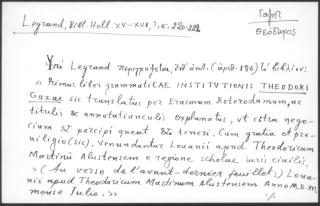 Γαζῆ
Θεόδωρος
Legrand, Bibl. Hell. XV-XVI, 3, σ. 220-221
Ὑπὸ Legrand περιγράφεται, (ἀριθ. 186) τὸ βιβλίον:
"Primus liber grammatiCAE INSTITUTIONIS THEODORI
Gazae sic translatus per Erasmum Roterodamum, ac
titulis & annotatiunculis explanatus, ut citra nego-
cium & percipi queat & teneri. Cum gratia et pre-
uiligio (sic). Venundantur Louanii apud Theodoricum
Martinũ Alustensem e regione scholae iuris ciuilis,
(Au verso de l'avant-dernier feuillet:) Loua-
nii apud Theodoricum Martinum Alustensem Anno M.D.XVI.
mense Iulio. »